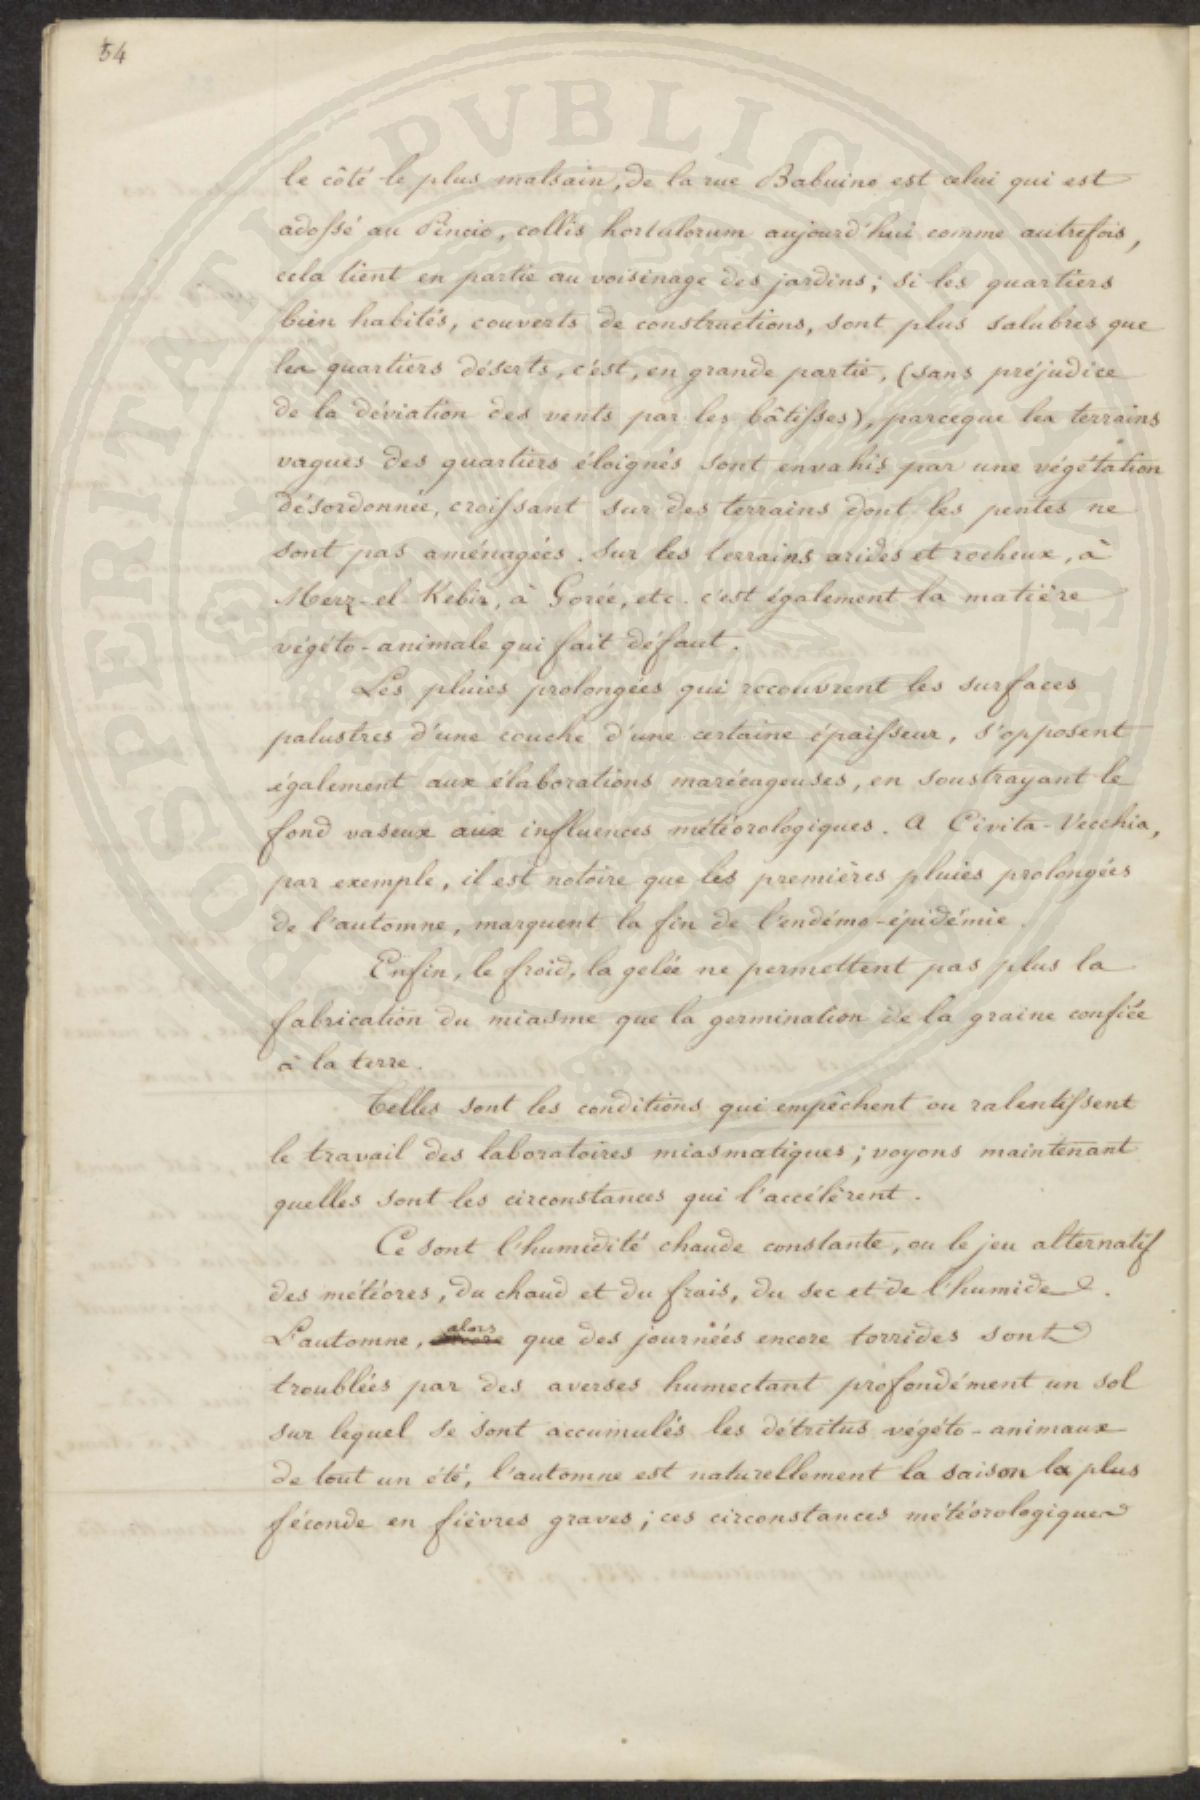 54
le côté le plus malsain, de la rue Babuino est celui qui est
adossé au Pincio, collis hortulorum aujourd'hui comme autrefois,
cela tient en partie au voisinage des jardins; si les quartiers
bien habités, couverts de constructions, sont plus salubres que
les quartiers déserts, c'est, en grande partie, (sans préjudice
de la déviation des vents par les bâtisses), parceque les terrains
vagues des quartiers éloignés sont envahis par une végétation
désordonnée, croissant sur des terrains dont les pentes ne
sont pas aménagées. Sur les terrains arides et rocheux, à
Merz-el-Kebir, à Gorée, etc. c'est également la matière
végéto-animale qui fait défaut.
Les pluies prolongées qui recouvrent les surfaces
palustres d'une couche d'une certaine épaisseur, s'opposent
également aux élaborations marécageuses, en soustrayant le
fond vaseux aux influences météorologiques. A Civita-Vecchia,
par exemple, il est notoire que les premières pluies prolongées
de l'automne, marquent la fin de l'endémo-épidémie.
Enfin, le froid, la gelée ne permettent pas plus la
fabrication du miasme que la germination de la graine confiée
à la terre.
Telles sont les conditions qui empêchent ou ralentissent
le travail des laboratoires miasmatiques; voyons maintenant
quelles sont les circonstances qui l'accélèrent.
Ce sont l'humidité chaude constante, ou le jeu alternatif
des météores, du chaud et du frais, du sec et de l'humide.
L'automne, alors que des journées encore torrides sont
troublées par des averses humectant profondément un sol
sur lequel se sont accumulés les détritus végéto-animaux
de tout un été, l'automne est naturellement la saison la plus
féconde en fièvres graves; ces circonstances météorologiques
PROSPERITATI PVBLICAE AVGENDAE